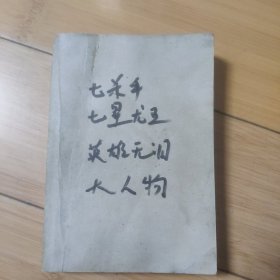 七杀手
七星龙王
英雄无泪
大人物